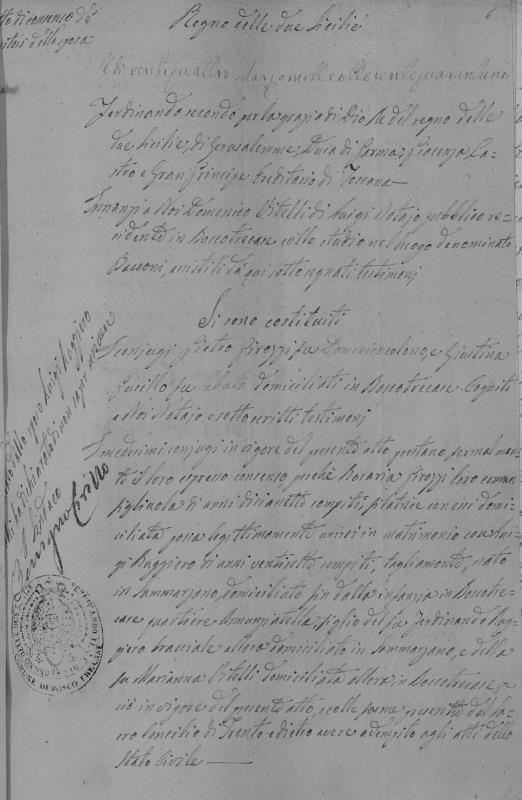 Atto di consenso de'
genitori della sposa
6.
Regno delle due Sicilie
Il dì ventiquattro Marzo mille ottocento quarantuno
Ferdinando secondo per la grazia di Dio Re del regno delle
due Sicilie, di Gerusalemme, Duca di Parma, Piacenza, Ca-
stro e Gran Principe Ereditario di Toscana
Innanzi a Noi Domenico Vitelli di Luigi Notajo pubblico re-
sidente in Boscotrecase collo studio nel luogo denominato
assistiti da' qui sotto segnati testimonj
Si sono costituiti
I conjugi Pietro Pirozzi fu Domenico colono, e Giustina
fu Sabato domiciliati in Boscotrecase. Cogniti
a Noi Notajo e sottoscritti testimonj
I medesimi conjugi in vigore del presente atto prestano formalmen-
te il loro espresso consenso perché Rosaria Pirozzi loro comune
figliuola di anni diciassette compiti, filatrice con essi domi-
ciliata possa legittimamente unirsi in matrimonio con Lui-
gi Ruggiero di anni ventisette compiti, tagliamonte, nato
in Sammarzano, domiciliato fin dalla infanzia in Boscotre-
case quartiere Annunziatella, figlio del fu Ferdinando Rug-
giero bracciale allora domiciliato in Sammarzano, e della
fu Marianna Vitelli domiciliata allora in Boscotrecase, e
ciò in vigore del presente atto, e colle forme prescritte dal Sa-
cro Concilio di Trento e dietro avere adempito agli atti dello
Stato Civile
dallo sposo Luigi Ruggiero
che ha dichiarato di non saper scrivere
Il Sindaco
Cirillo
COMUNE DI BOSCO TRECASE